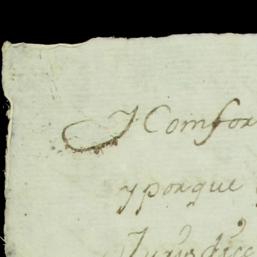 Y Comfor
yporque
Jurisdice